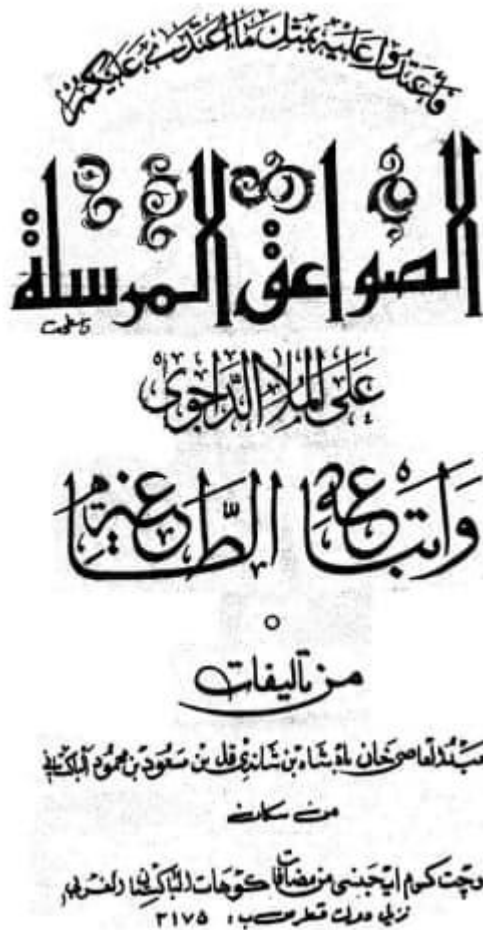 فاعتدوا عليه بمثل ما اعتدى عليكم
الصواعق المرسلة
على الملا الداجوي
واتباعه الطاغية
من تأليفات
عبده العاصي خان بادشاه بن شاندي قل بن سعود بن محمود الباكستاني
من سكان
كرم ايجنسي من مضافات كوهات الباكستان الغربي
نزيل دولت قطر ص ب : ٢١٧٥